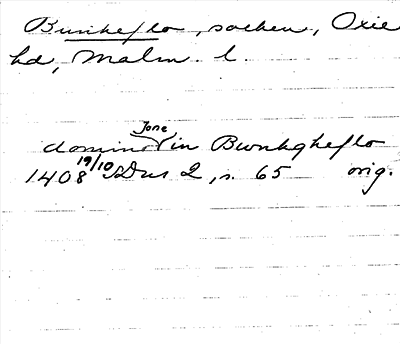 Bunkeflo, socken, Oxie
hd, Malm. l.
Jone
domino in Bwnkgheflo
1408 19/10 SDns 2, s. 65 orig.